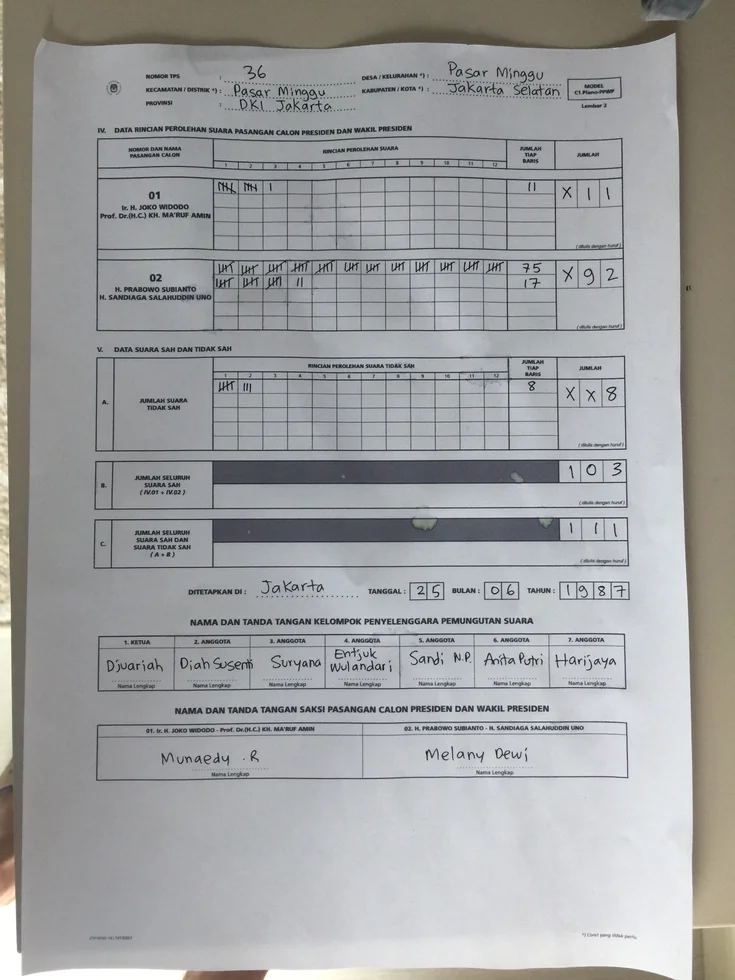 NOMOR TPS : 36
DESA / KELURAHAN *) : Pasar Minggu
KECAMATAN / DISTRIK *) : Pasar Minggu
KABUPATEN / KOTA *) : Jakarta Selatan
PROVINSI : DKI Jakarta
MODEL
C1.Plano-PPWP
Lembar 2
IV. DATA RINCIAN PEROLEHAN SUARA PASANGAN CALON PRESIDEN DAN WAKIL PRESIDEN
NOMOR DAN NAMA PASANGAN CALON
RINCIAN PEROLEHAN SUARA
JUMLAH TIAP BARIS
JUMLAH
1 2 3 4 5 6 7 8 9 10 11 12
01
Ir. H. JOKO WIDODO
Prof. Dr.(H.C.) KH. MA'RUF AMIN
11
X 1 1
( ditulis dengan huruf )
02
H. PRABOWO SUBIANTO
H. SANDIAGA SALAHUDDIN UNO
75
17
X 9 2
( ditulis dengan huruf )
V. DATA SUARA SAH DAN TIDAK SAH
RINCIAN PEROLEHAN SUARA TIDAK SAH
JUMLAH TIAP BARIS
JUMLAH
1 2 3 4 5 6 7 8 9 10 11 12
A.
JUMLAH SUARA
TIDAK SAH
8
X X 8
( ditulis dengan huruf )
B.
JUMLAH SELURUH
SUARA SAH
( IV.01 + IV.02 )
1 0 3
( ditulis dengan huruf )
C.
JUMLAH SELURUH
SUARA SAH DAN
SUARA TIDAK SAH
( A + B )
1 1 1
( ditulis dengan huruf )
DITETAPKAN DI : Jakarta TANGGAL : 25 BULAN : 06 TAHUN : 1987
NAMA DAN TANDA TANGAN KELOMPOK PENYELENGGARA PEMUNGUTAN SUARA
1. KETUA 2. ANGGOTA 3. ANGGOTA 4. ANGGOTA 5. ANGGOTA 6. ANGGOTA 7. ANGGOTA
Djuariah Diah Susenti Suryana Entjuk Wulandari Sandi N.P. Anita Putri Harijaya
Nama Lengkap Nama Lengkap Nama Lengkap Nama Lengkap Nama Lengkap Nama Lengkap Nama Lengkap
NAMA DAN TANDA TANGAN SAKSI PASANGAN CALON PRESIDEN DAN WAKIL PRESIDEN
01. Ir. H. JOKO WIDODO - Prof. Dr.(H.C.) KH. MA'RUF AMIN
02. H. PRABOWO SUBIANTO - H. SANDIAGA SALAHUDDIN UNO
Munaedy .R
Melany Dewi
Nama Lengkap
Nama Lengkap
*) Coret yang tidak perlu